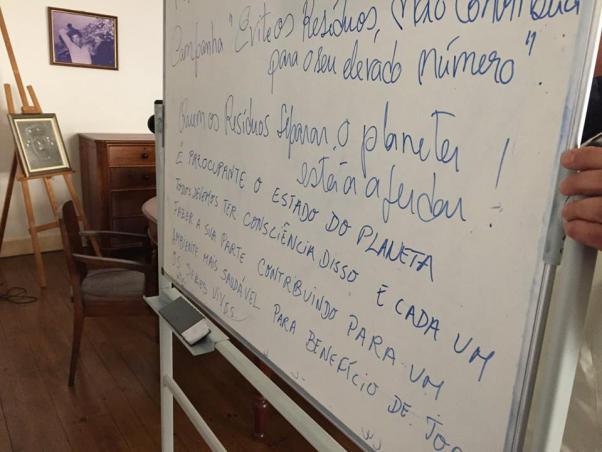 Campanha "Evite os Resíduos, Não Contribua
para o seu elevado número".
Quem os Resíduos Separar, o planeta
estará a ajudar!
É PREOCUPANTE O ESTADO DO PLANETA
TODOS DEVEMOS TER CONSCIÊNCIA DISSO E CADA UM
FAZER A SUA PARTE CONTRIBUINDO PARA UM
AMBIENTE MAIS SAUDÁVEL PARA BENEFÍCIO DE TOD
OS SERES VIVOS